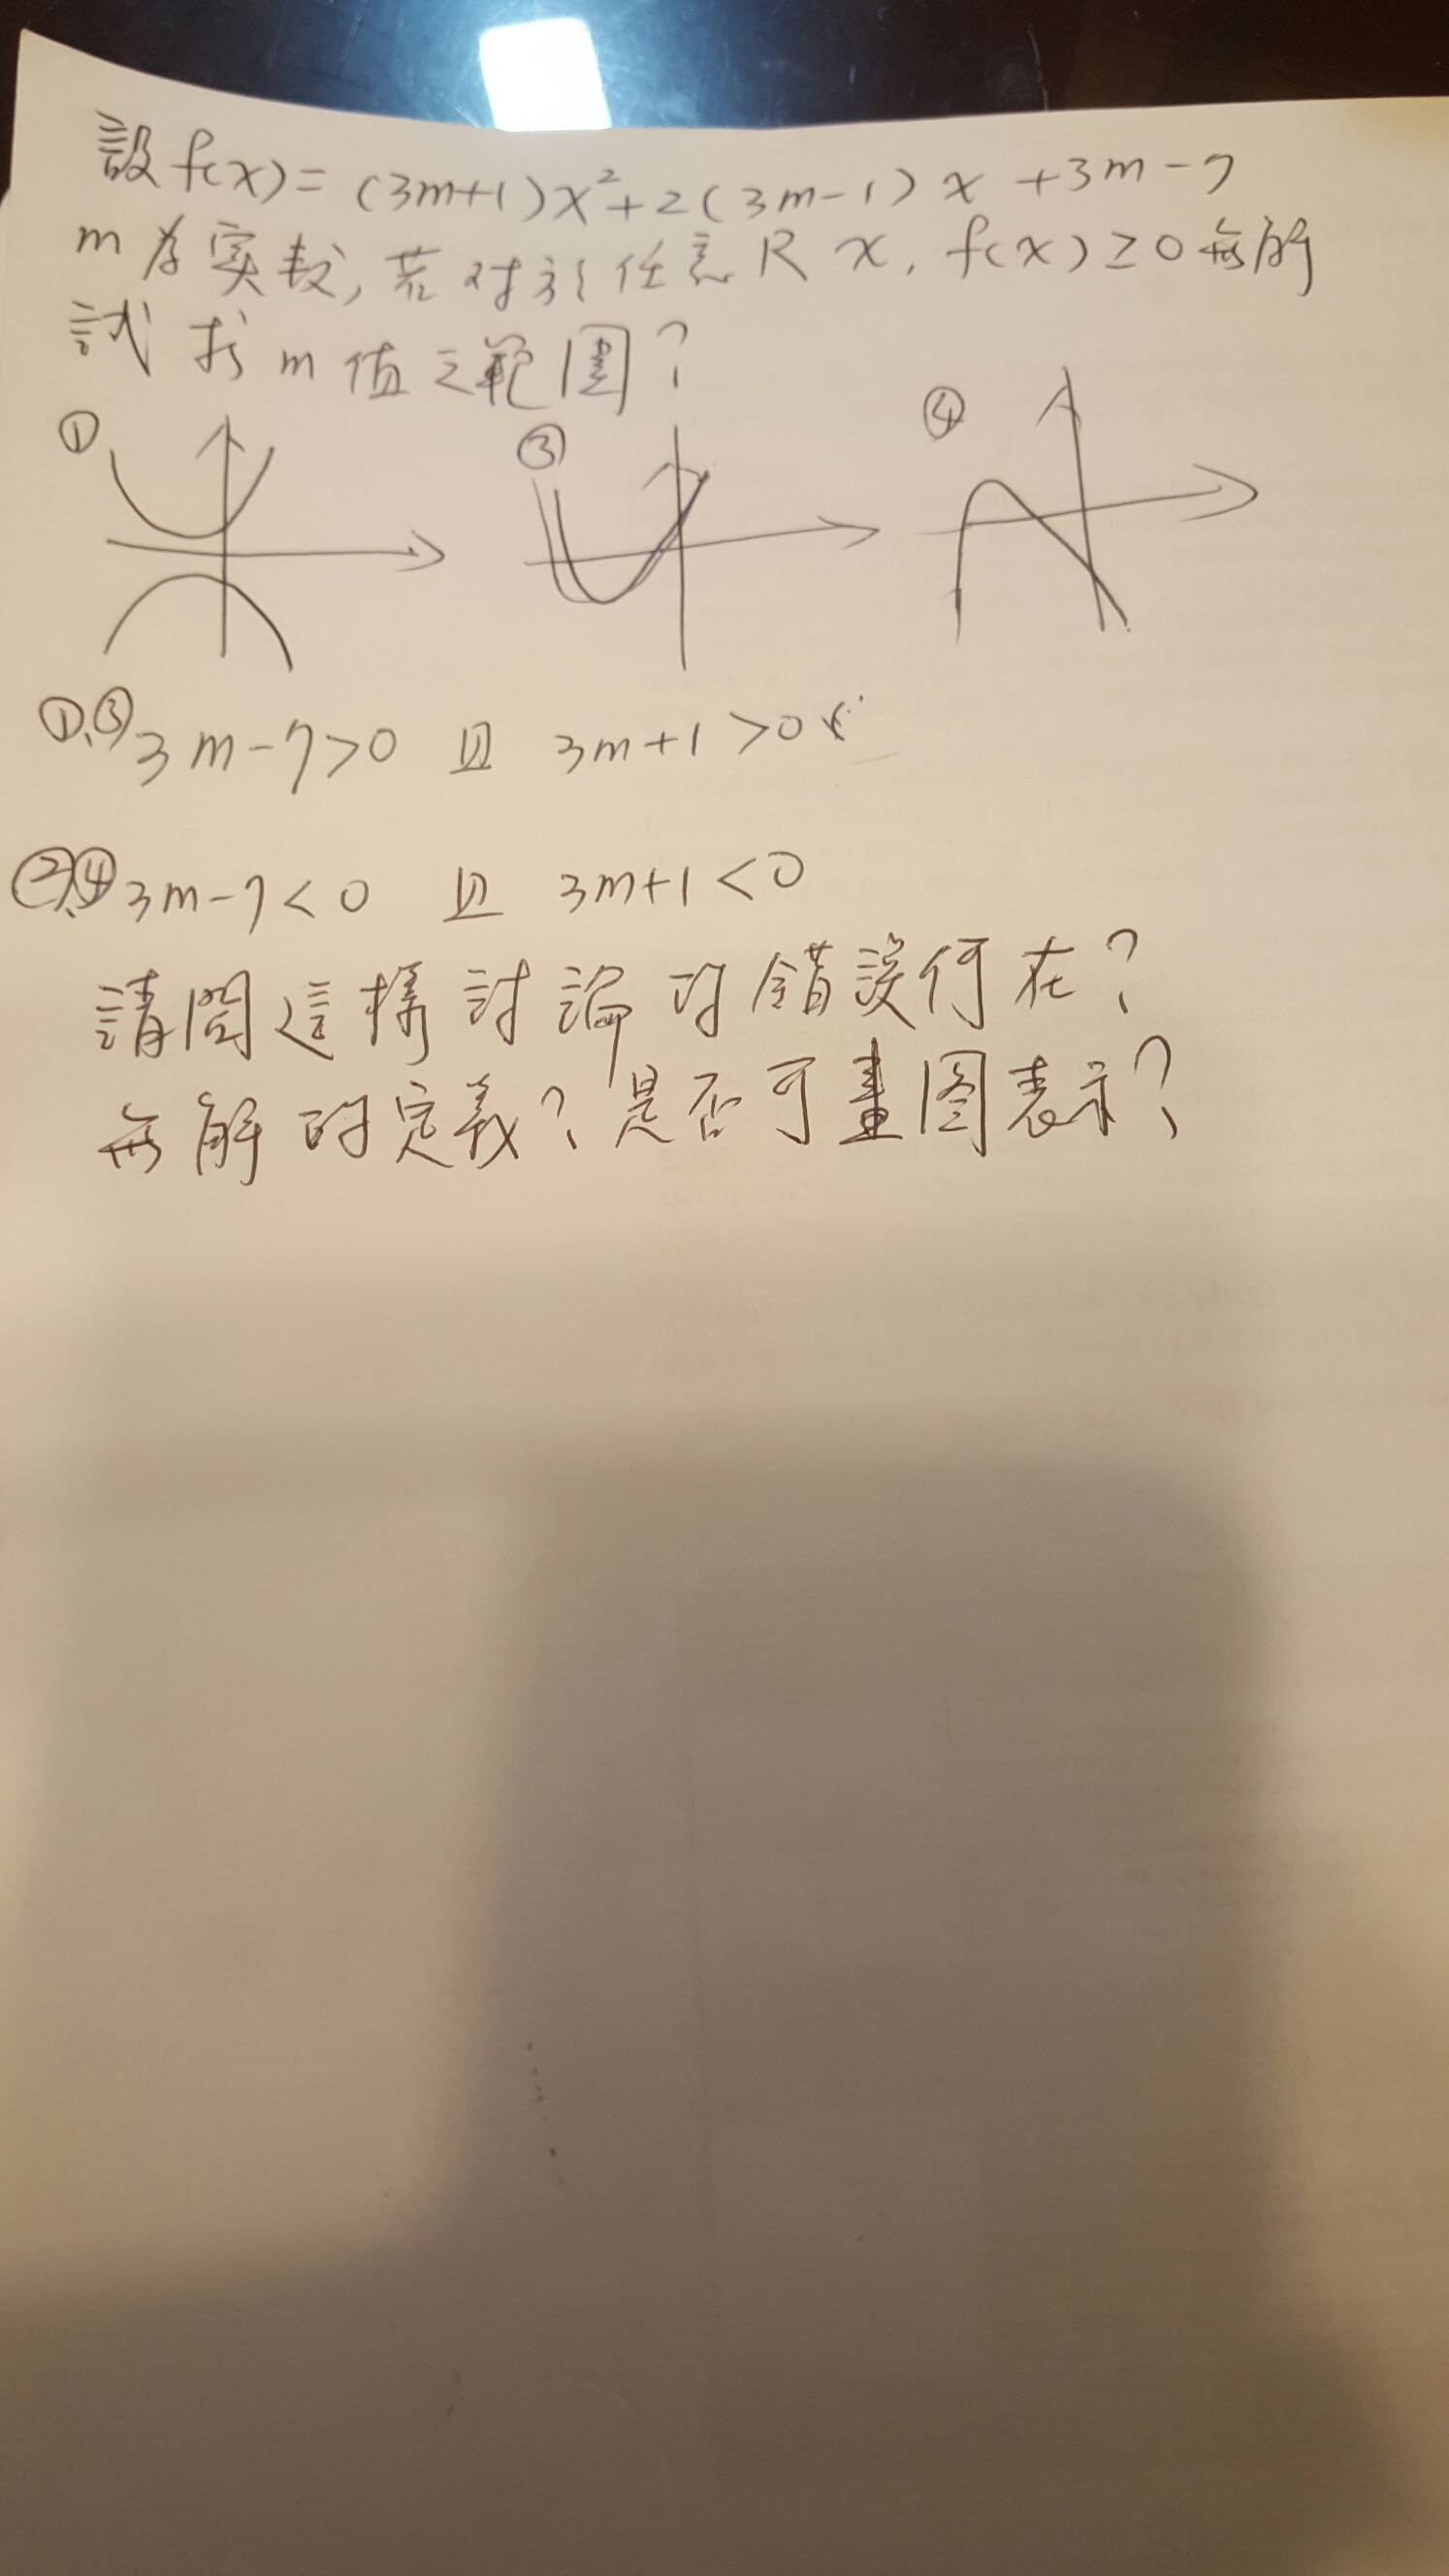 設 f(x) = (3m+1)x²+2(3m-1)x+3m-7
m為實數,若对於任意R x, f(x)≥0無解
試求m值之範圍?
① ③ ④
①、③ 3m-7>0 且 3m+1>0
②、④ 3m-7<0 且 3m+1<0
請問這樣討論的錯誤何在?
無解的定義?是否可畫图表示?